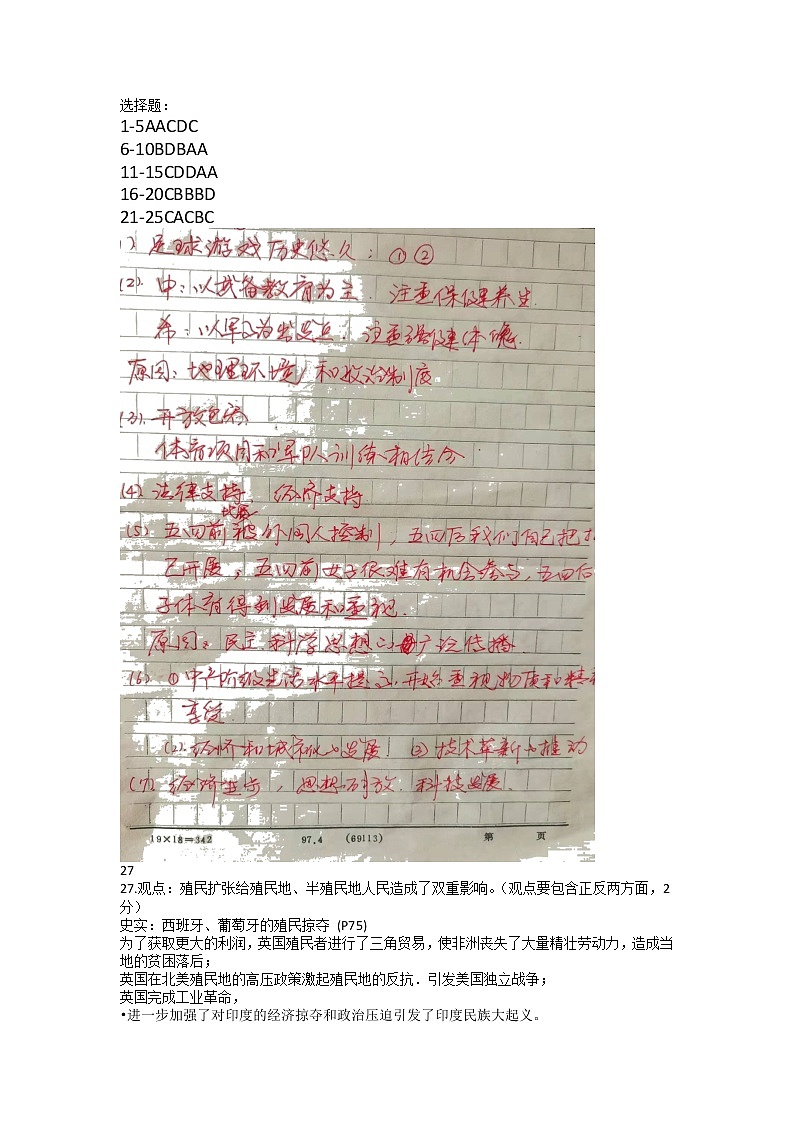 选择题：
1-5AACDC
6-10BDBAA
11-15CDDAA
16-20CBBBD
21-25CACBC
1). 足球游戏历史悠久；①②
(2). 中：以武备教育为主．注重保健养生．
希：以军事为出发点．注重强健体魄．
原因：地理环境和政治制度
(3). 开放包容．
体育项目和军队训练相结合
(4). 法律支持、经济支持
比赛
(5) 五四前被外国人控制，五四后我们自己把
己开展；五四前女子很难有机会参与，五四后
子体育得到发展和重视．
原因：民主 科学思想的广泛传播．
(6) ①中产阶级生活水平提高，开始重视物质和精
享受．
(2). 经济和城市化的发展！ ③技术革新的推动
(7) 经济进步，思想解放．科技发展．
19×18=342 97.4 (69113) 第 页
27
27.观点：殖民扩张给殖民地、半殖民地人民造成了双重影响。（观点要包含正反两方面，2
分）
史实：西班牙、葡萄牙的殖民掠夺 (P75)
为了获取更大的利润，英国殖民者进行了三角贸易，使非洲丧失了大量精壮劳动力，造成当
地的贫困落后；
英国在北美殖民地的高压政策激起殖民地的反抗．引发美国独立战争；
英国完成工业革命，
•进一步加强了对印度的经济掠夺和政治压迫引发了印度民族大起义。